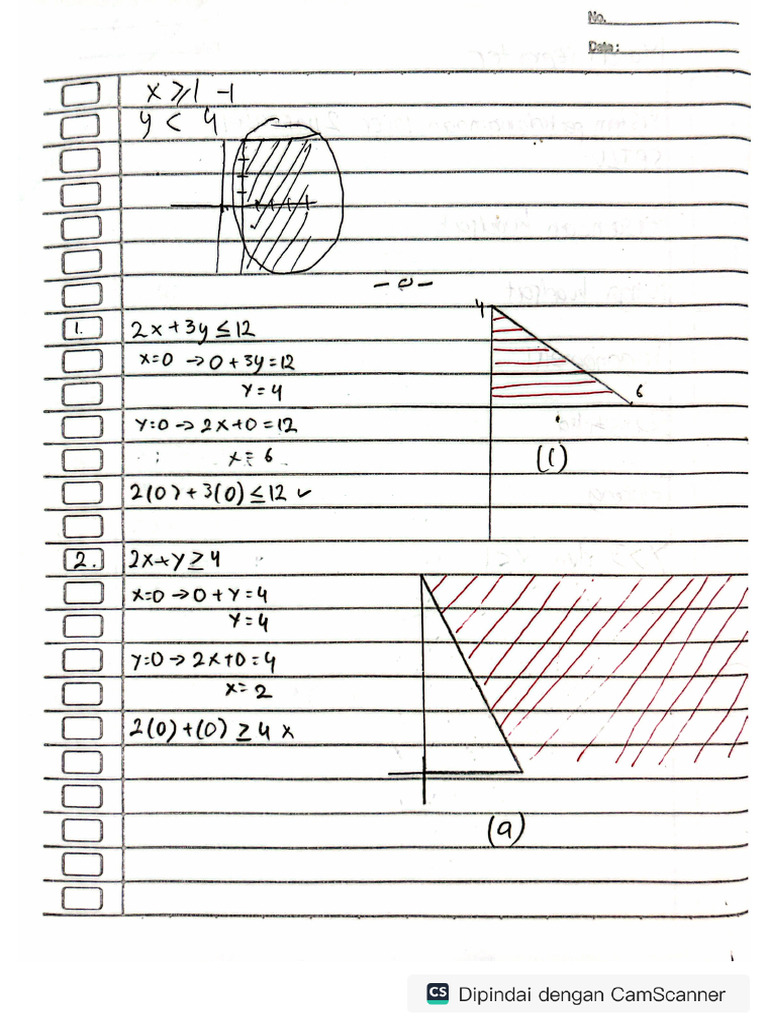 No.
Date:
x ≥ 1 -1
y < 4
- o -
4
1. 2x + 3y ≤ 12
x=0 → 0 + 3y = 12
6
y = 4
y=0 → 2x + 0 = 12
x = 6
(1)
2(0) + 3(0) ≤ 12 ✓
2. 2x + y ≥ 4
x=0 → 0 + y = 4
y = 4
y=0 → 2x + 0 = 4
x = 2
2(0) + (0) ≥ 4 x
(a)
CS Dipindai dengan CamScanner